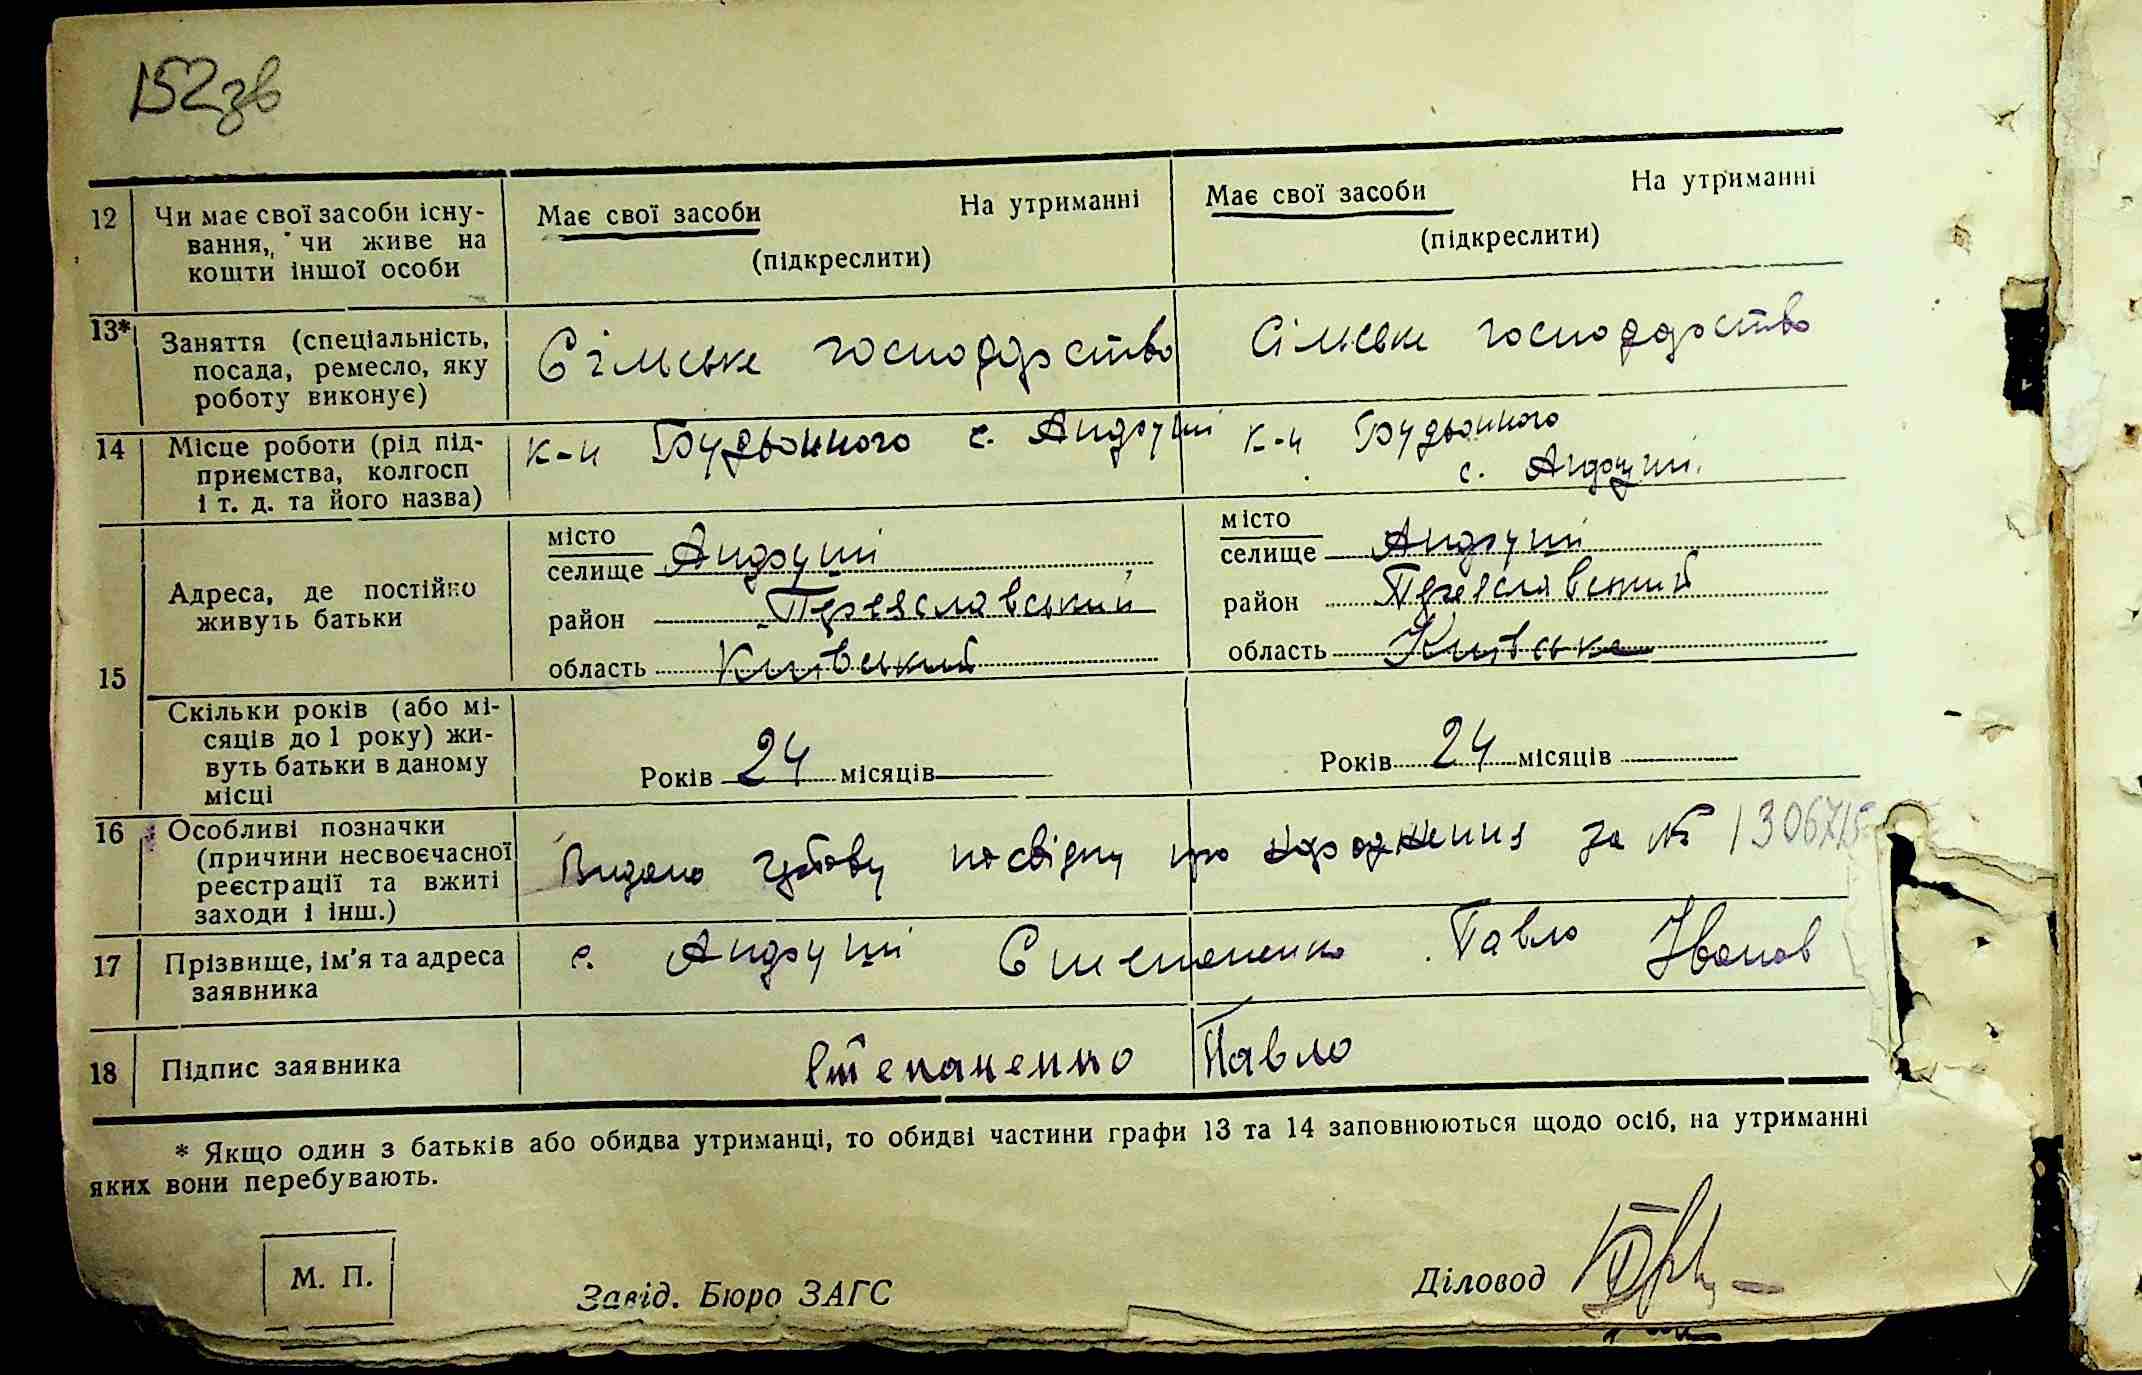 152 зв
12 Чи має свої засоби існу- Має свої засоби На утриманні Має свої засоби На утриманні
вання, чи живе на (підкреслити) (підкреслити)
кошти іншої особи
13* Заняття (спеціальність, Сільське господарство Сільське господарство
посада, ремесло, яку
роботу виконує)
14 Місце роботи (рід під- к-п Будьонного с. Андруші к-п Будьонного
приємства, колгосп с. Андруші.
і т. д. та його назва)
15 Адреса, де постійно живуть батьки
місто
селище Андруші
район Переяславський
область Київський
місто
селище Андруші
район Переяславський
область Київська
Скільки років (або мі-
сяців до 1 року) жи-
вуть батьки в даному
місці
Років 24 місяців Років 24 місяців
16 Особливі позначки
(причини несвоєчасної Видано посвідку про народження за №
реєстрації та вжиті
заходи і інш.)
17 Прізвище, ім'я та адреса с. Андруші Степаненко Павло Іванов
заявника
18 Підпис заявника Степаненко Павло
* Якщо один з батьків або обидва утриманці, то обидві частини графи 13 та 14 заповнюються щодо осіб, на утриманні
яких вони перебувають.
М. П.
Завід. Бюро ЗАГС
Діловод